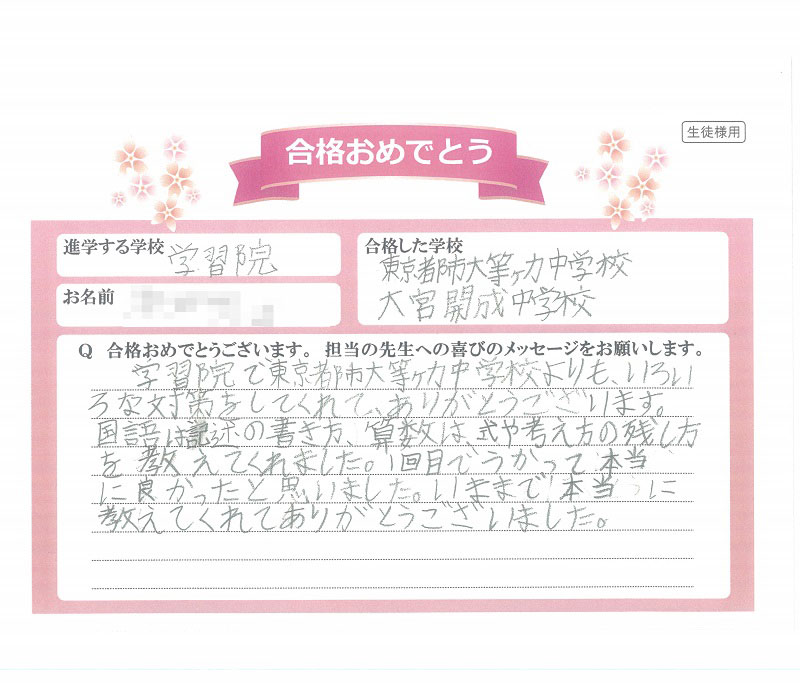 生徒様用
合格おめでとう
進学する学校 学習院
合格した学校
東京都市大等々力中学校
大宮開成中学校
お名前
Q 合格おめでとうございます。担当の先生への喜びのメッセージをお願いします。
学習院で東京都市大等々力中学校よりも、いろい
ろな対策をしてくれて、ありがとうございます。
国語は記述の書き方、算数は、式や考え方の残し方
を教えてくれました。1回目でうかって本当
に良かったと思いました。いままで本当に
教えてくれてありがとうございました。